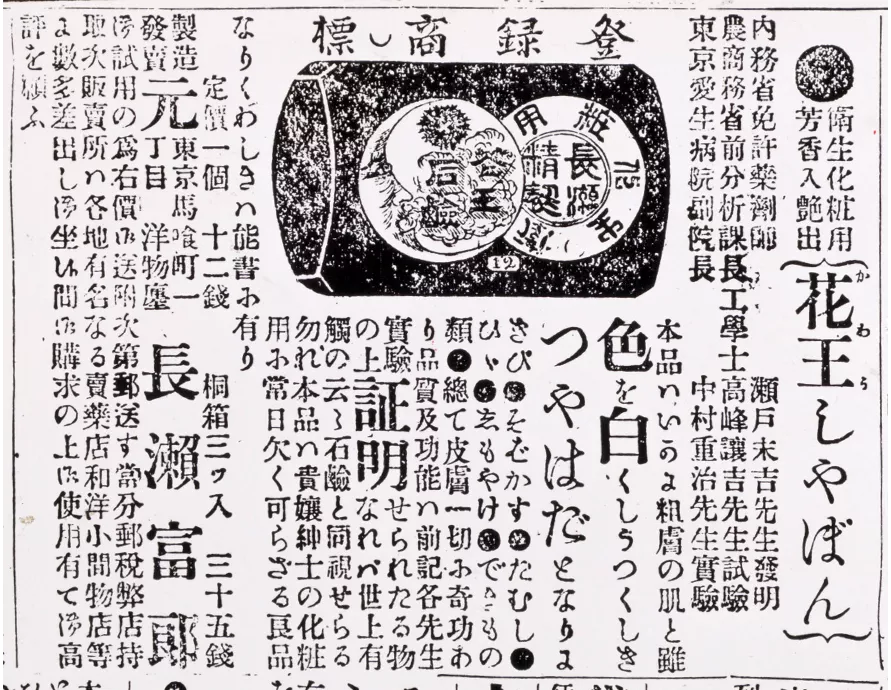 衛生化粧用
芳香入艶出
花王しやぼん
かわう
内務省免許藥劑師 瀬戸末吉先生發明
農商務省前分析課長工學士高峰讓吉先生試驗
東京愛生病院副院長 中村重治先生實驗
登録商標
粧用
長瀬
精製
花王
石鹼
12
本品ハいかに粗膚の肌と雖
色を白くしうつくしき
つやはだとなりに
きび●そばかす●たむし●
ひゞ●しもやけ●できもの
類●總て皮膚一切に奇功あ
り品質及功能ハ前記各先生
實驗の上証明せられたる物
なれバ世上有
觸の云々石鹼と同視せらる
勿れ本品ハ貴孃紳士の化粧
用に常日欠く可らざる良品
なりくわしきハ能書に有り
定價一個 十二錢 桐箱三ッ入 三十五錢
製造
發賣元 東京馬喰町一
丁目 洋物廛 長瀬富郎
御試用の爲右價御送附次第郵送す當分郵税弊店持
取次販賣所ハ各地有名なる賣藥店和洋小間物店等
に數多差出し御坐候間御購求の上御使用有て御高
評を願ふ